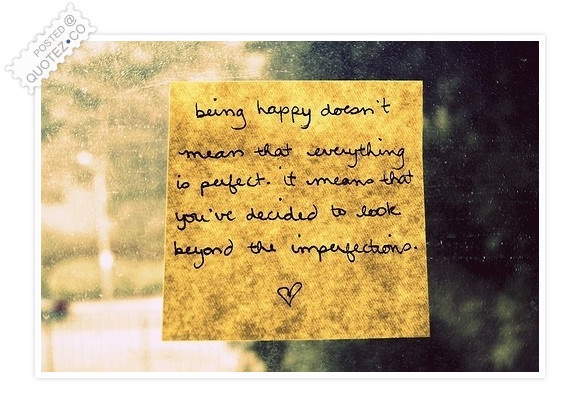 POSTED @
QUOTEZ.CO
being happy doesn't
mean that everything
is perfect. it means that
you've decided to look
beyond the imperfections.